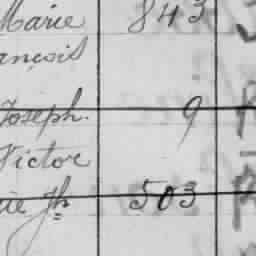 Marie 843
ançois
Joseph. 9
Victor
rie Jh 503